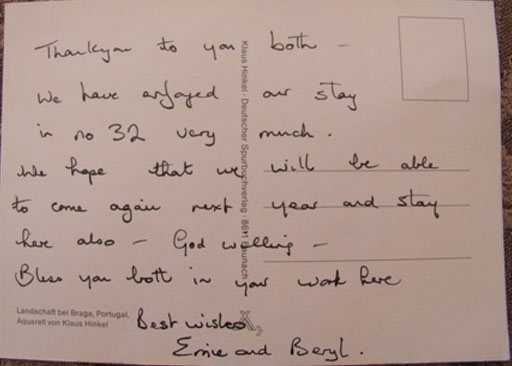 Thankyou to you both -
We have enjoyed our stay
in no 32 very much.
We hope that we will be able
to come again next year and stay
here also - God willing -
Bless you both in your work here
Best wishes
Ernie and Beryl.
Klaus Hinkel · Deutscher Spurbuchverlag · 8611 Baunach
Landschaft bei Braga, Portugal,
Aquarell von Klaus Hinkel